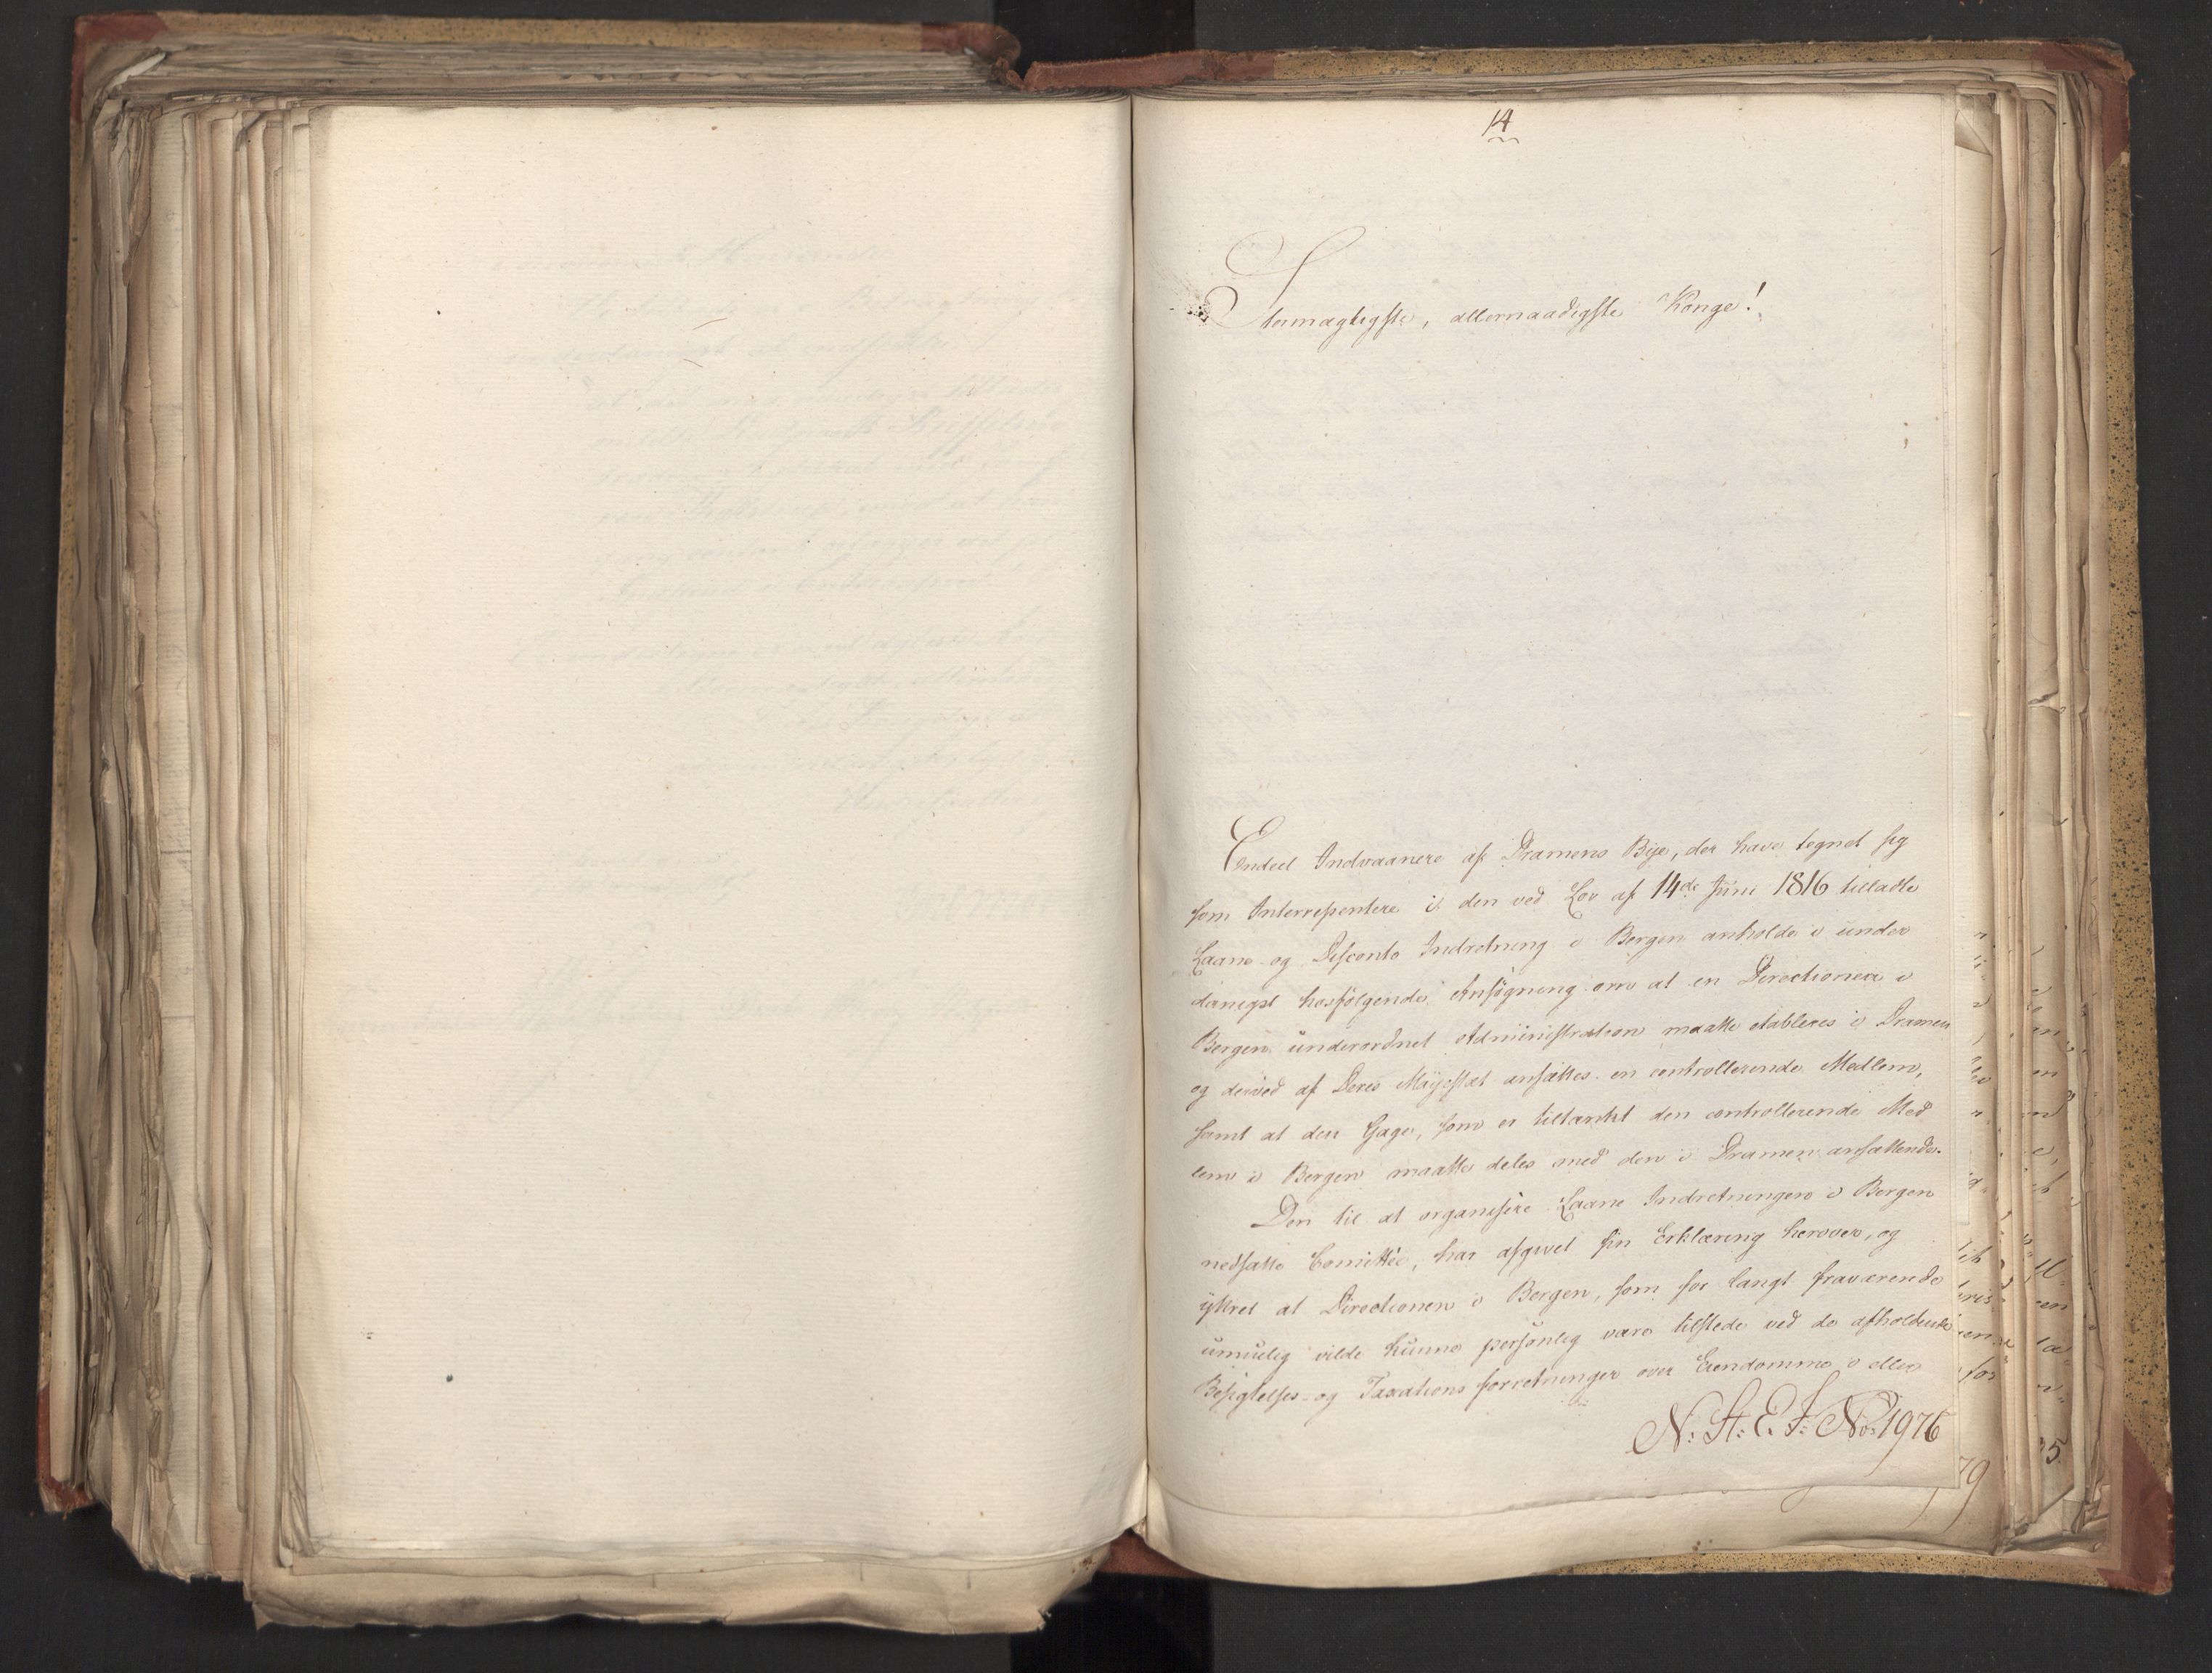 14
Stormægtigste, allernaadigste Konge!
Endeel Indvaanere af Dramens Bye, der have tegnet sig
som Interressentere i den ved Lov af 14de Juni 1816 tilladte
Laane- og Disconto Indretning i Bergen anholde i under
danigst hosfølgende Ansøgning om at en Directionen i
Bergen underordnet Administration maatte etableres i Dramen
og derved af Deres Majestæt ansættes en controllerende Medlem,
samt at den Gage, som er tiltænkt den controllerende Med
lem i Bergen maatte deles med den i Dramen ansættende.
Den til at organisere Laane Indretningen i Bergen
nedsatte Comittée, har afgivet sin Erklæring herover, og
yttret at Directionen i Bergen, som for langt fraværende
umuelig vilde kunne personlig være tilstede ved de afholdende
Besigtelses- og Taxations forretninger over Eiendomme i eller
N: St: E. F: No: 1976